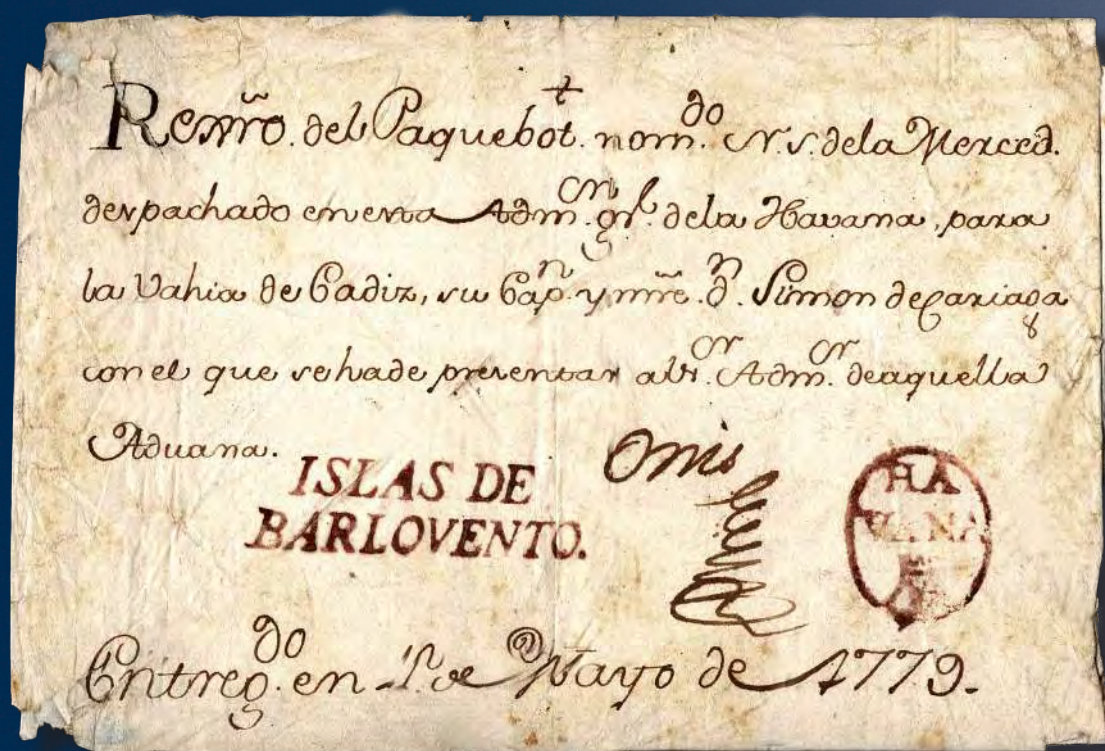 Rexñro. del Paquebot. nom.do N. S. dela Merced.
despachado en esta Adm.cn gr.l dela Havana, para
la Vahia de Cadiz, su Cap.n y mñre. D.n Simon de
con el que sehade presentar al Sr. Adm.or de aquella
Aduana.
ISLAS DE
BARLOVENTO.
HA
VANA
Entreg.do en 1.º de Mayo de 1779.